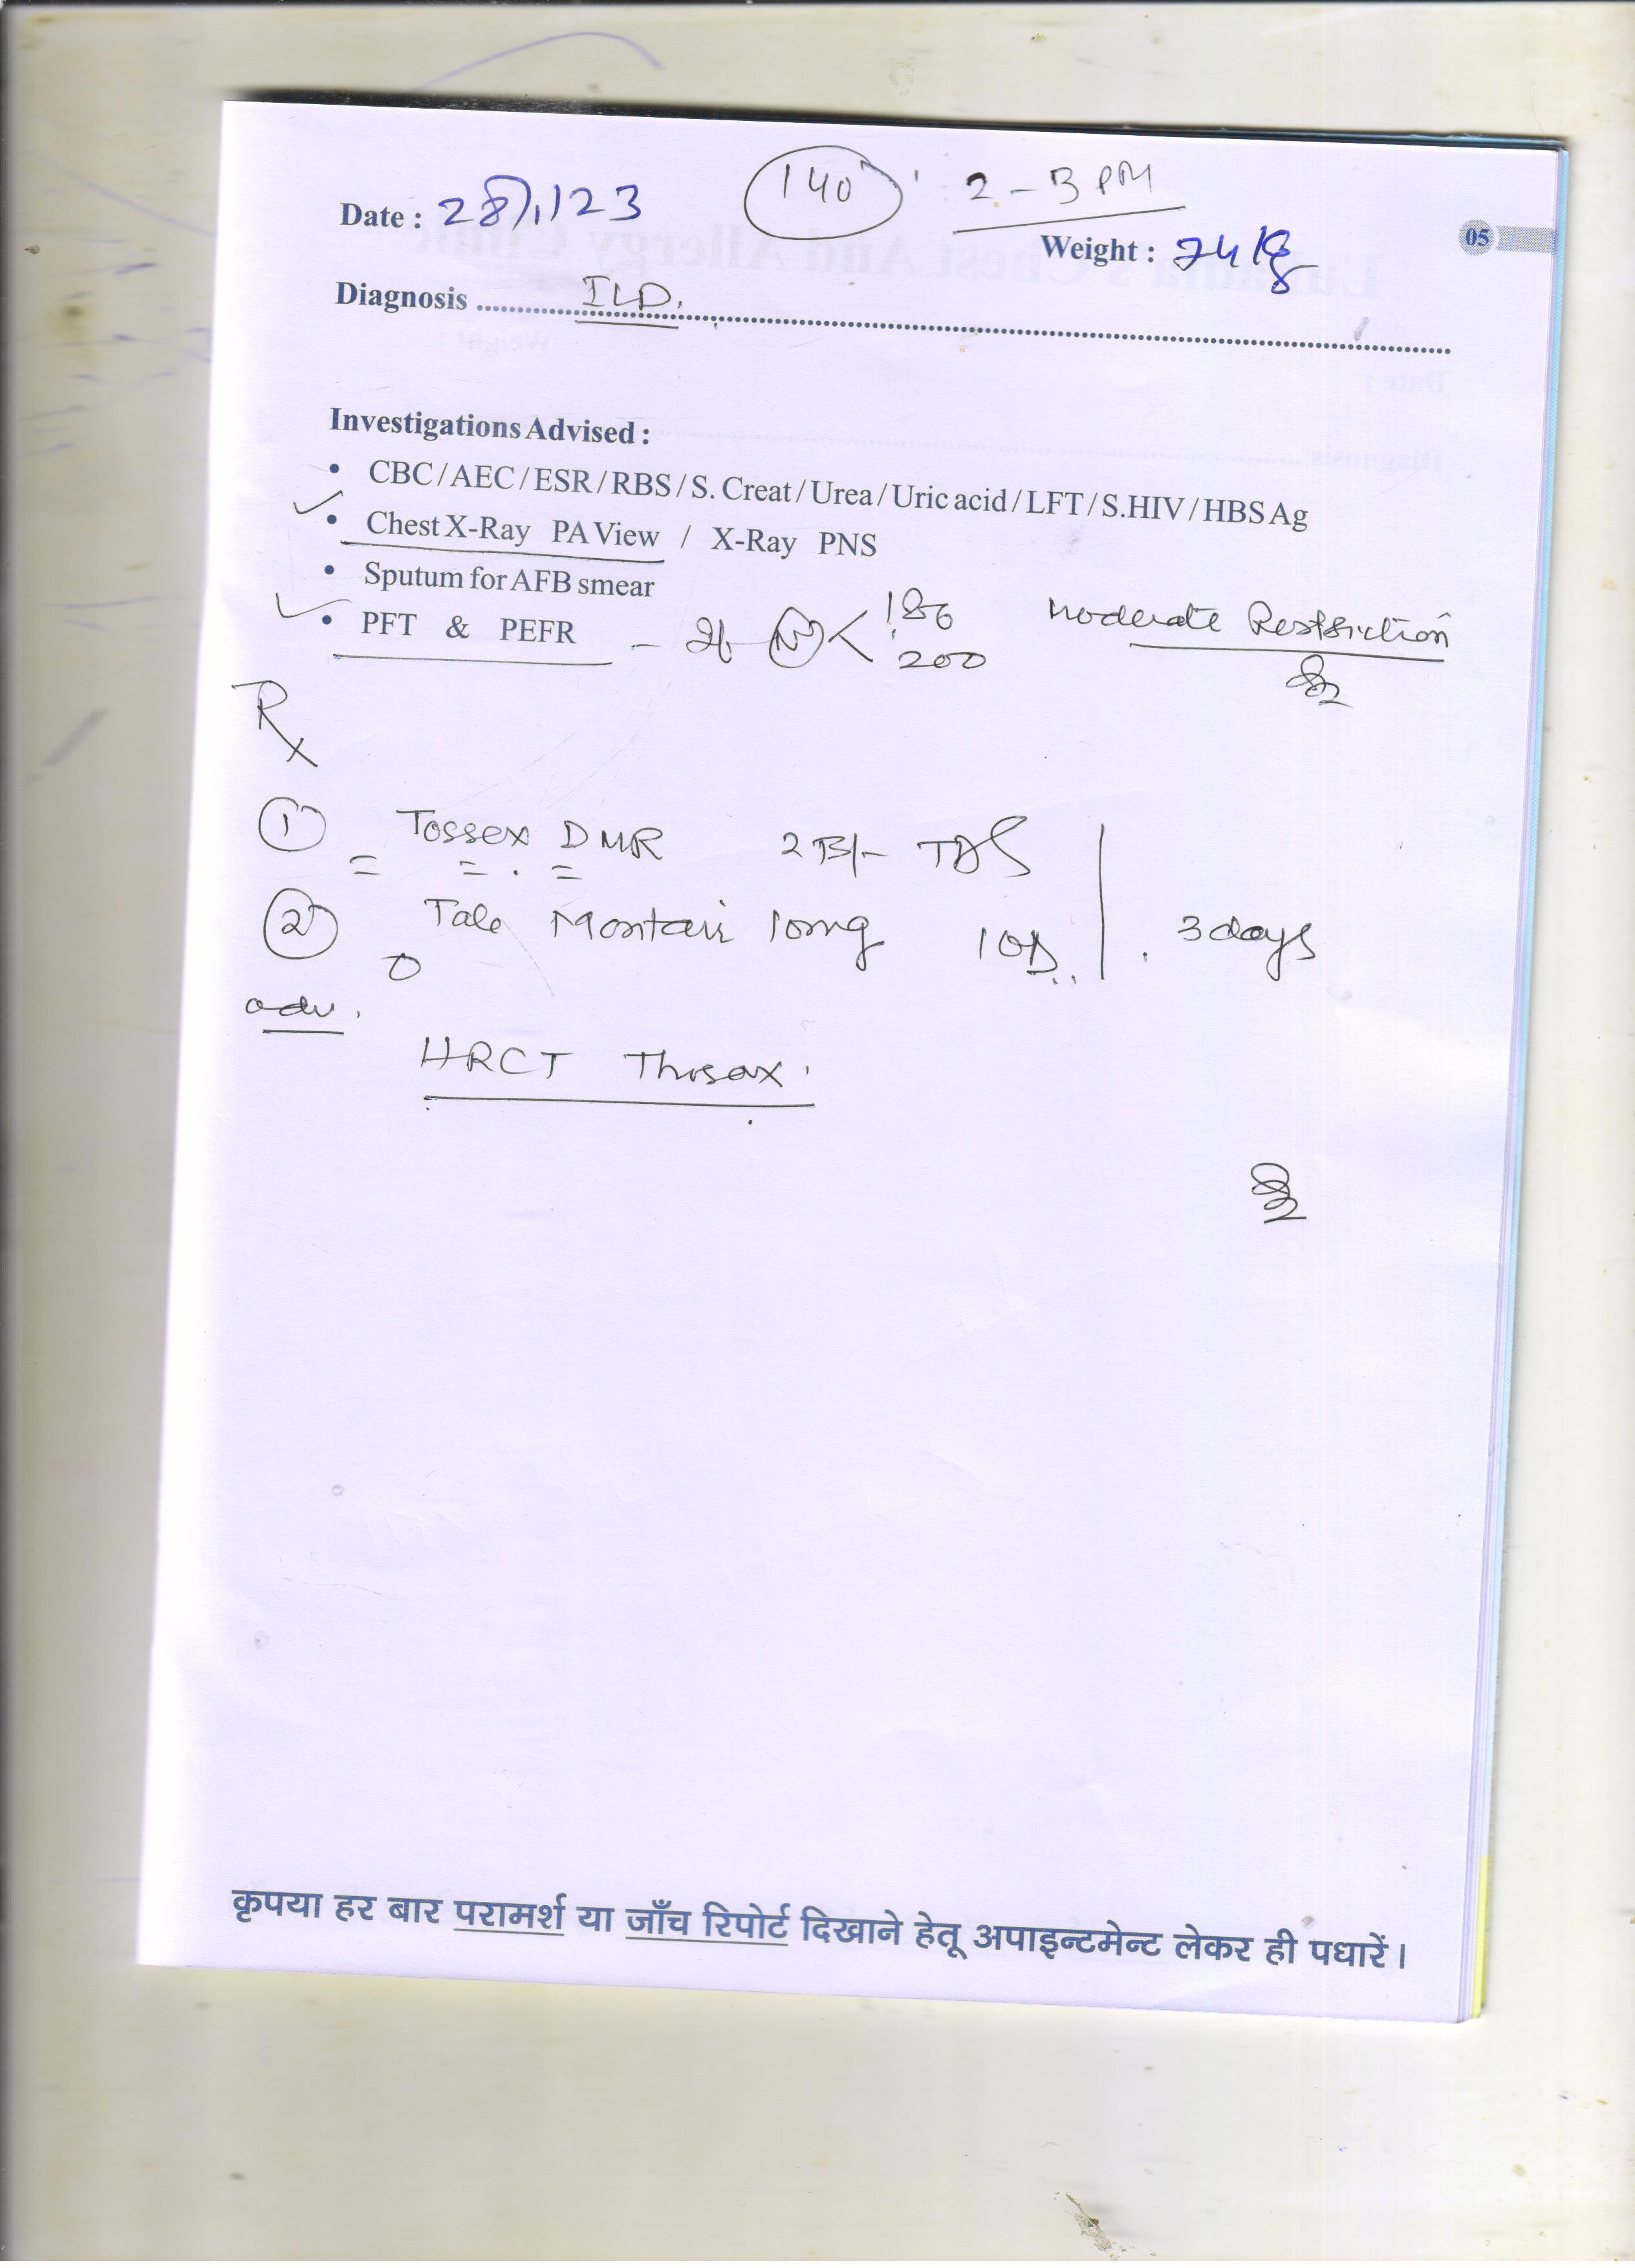 140 2 - 3 PM
Date : 28/1/23
05
Weight : 74 kg
Diagnosis ILD.
Investigations Advised :
• CBC / AEC / ESR / RBS / S. Creat / Urea / Uric acid / LFT / S.HIV / HBSAg
• Chest X-Ray PA View / X-Ray PNS
• Sputum for AFB smear
• PFT & PEFR - < 186 Moderate Restriction
200
Rx
① Tossex DMR TDS
② Tab Montair 10mg 1 OD 3 days
adv.
HRCT Thorax.
कृपया हर बार परामर्श या जाँच रिपोर्ट दिखाने हेतू अपाइन्टमेन्ट लेकर ही पधारें।